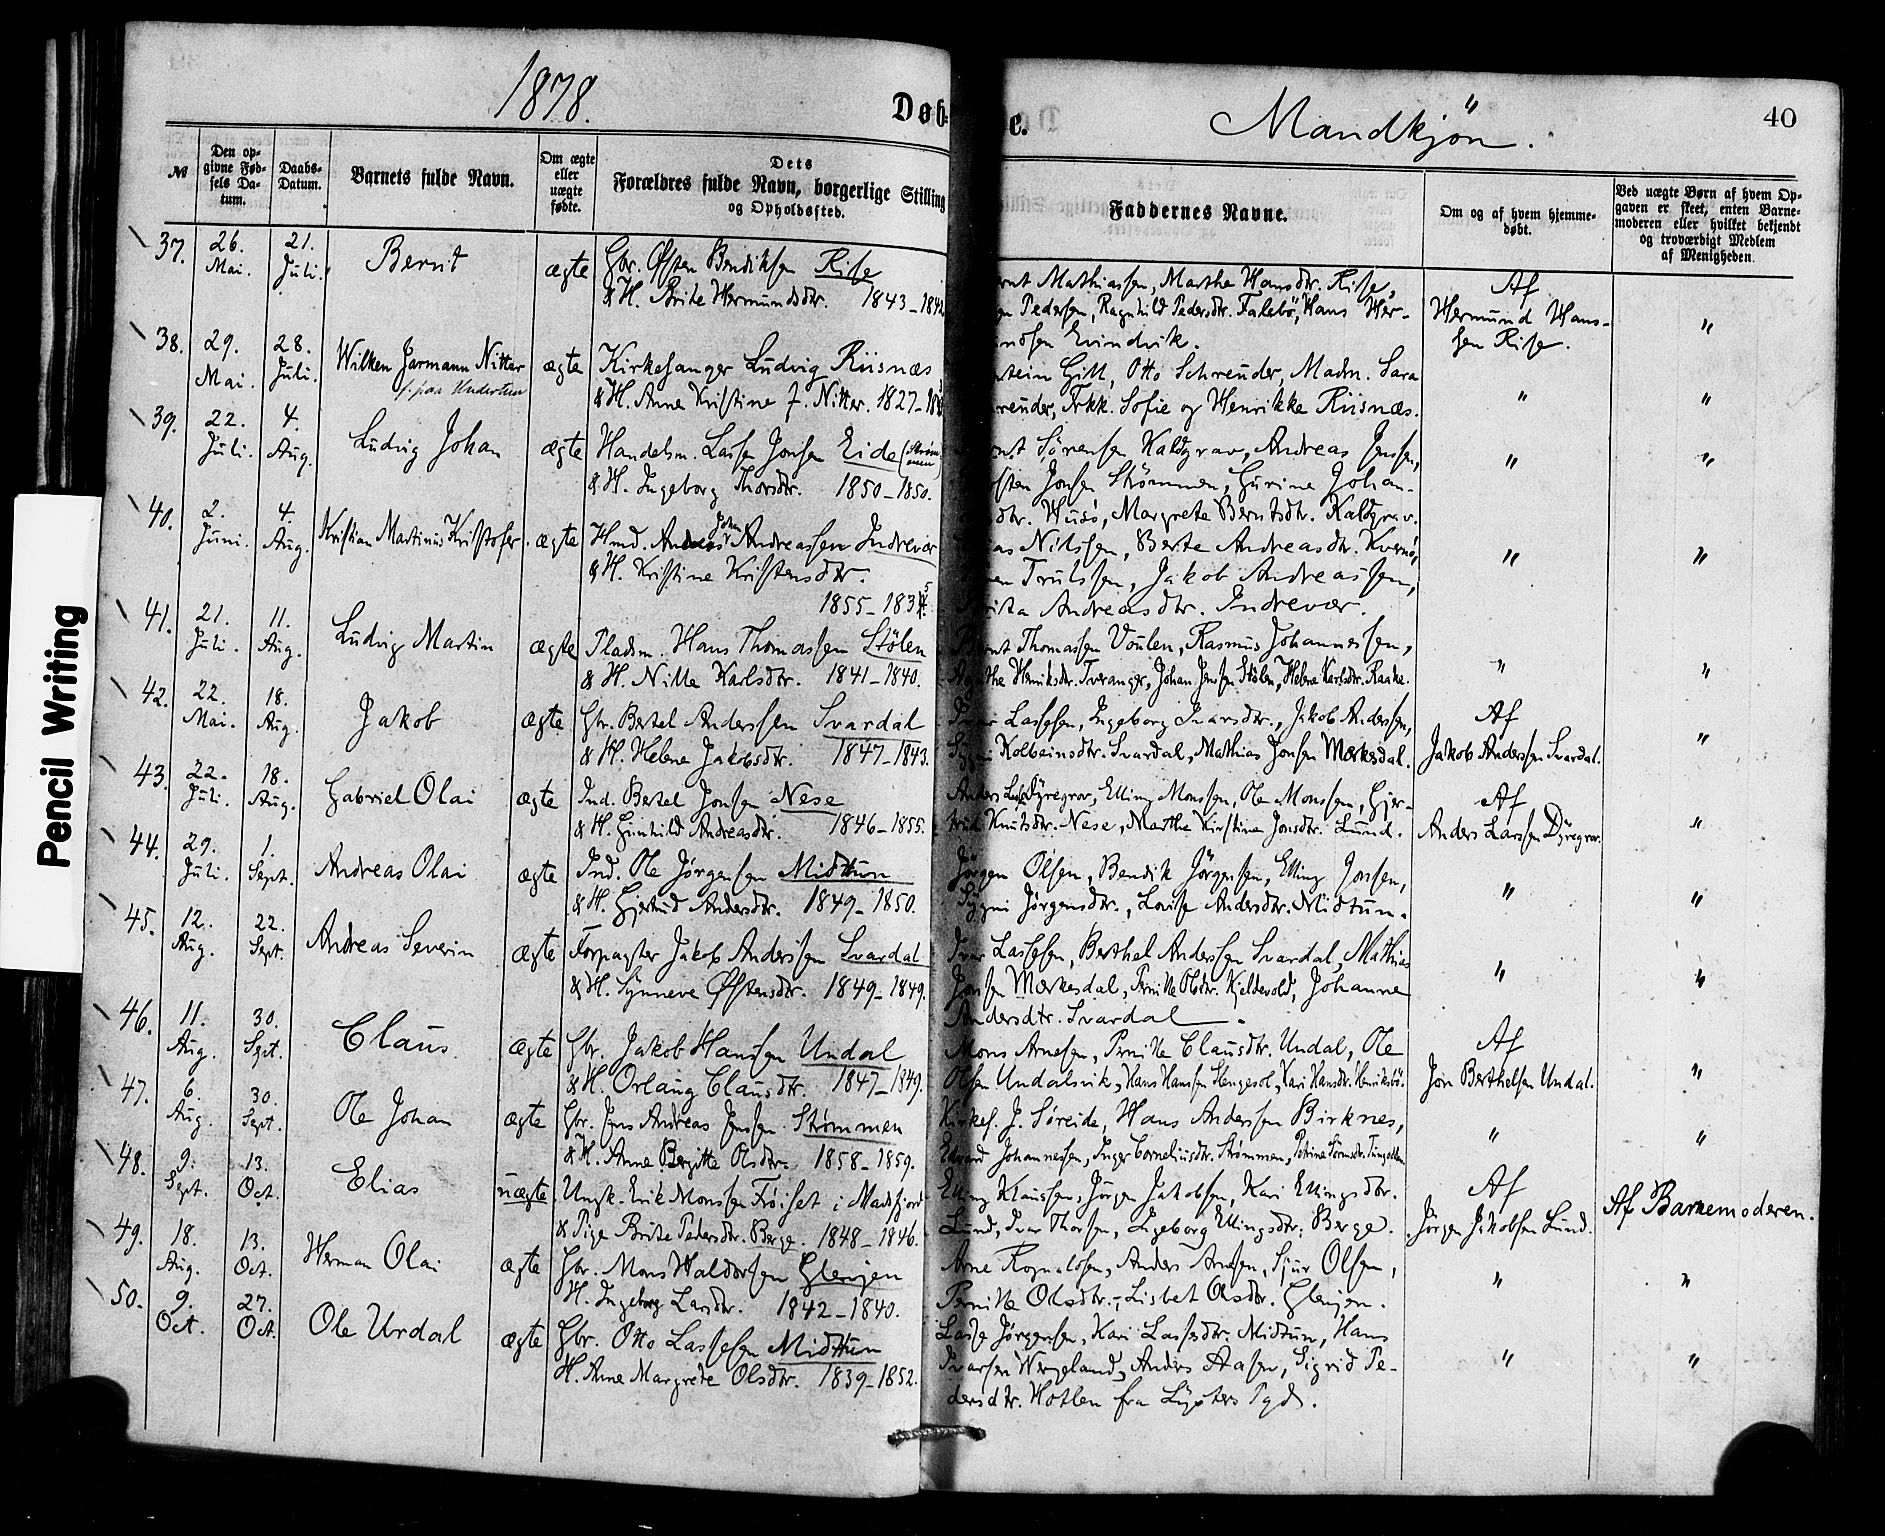 1878.
Døb-
e.
Mandkjön.
40
Pencil Writing
№
Den op-
givne Fød-
sels Da-
tum.
Daabs-
Datum.
Barnets fulde Navn.
Om ægte
eller
uægte
fødte.
Dets
Forældres fulde Navn, borgerlige Stilling
og Opholdssted.
Faddernes Navne.
Om og af hvem hjemme-
døbt.
Ved uægte Børn af hvem Op-
gaven er skeet, enten Barne-
moderen eller hvilket bekjendt
og troværdigt Medlem
af Menigheden.
37. 26. Mai. 21. Juli. Bernt ægte Gbr. Østen Bendiksen Rise
& H. Brite Hermundsdtr. 1843-1842
Mathiassen, Marthe Hansdtr. Rise,
Pedersen, Ragnhild Pedersdtr. Falebö, Hans Her-
Evindvik.
Af
Hermund Hans-
sen Rise.
"
38. 29. Mai. 28. Juli. Wilken Jarmann Nitter ægte Kirkesanger Ludvig Riisnæs
& H. Anne Kristine f. Nitter. 1827-
Gill, Otto Schreuder, Madm. Sara
Frkk. Sofie og Henrikke Riisnæs.
" "
39. 22. Juli. 4. Aug. Ludvig Johan ægte Handelsm. Lasse Jonsen Eide
& H. Ingeborg Thorsdtr. 1850-1850.
Sørensen Kaldgrav, Andreas Jensen,
Jonsen Strömmen, Gurine Johan-
Husö, Margrete Berntsdtr. Kaldgrav.
" "
40. 2. Juni. 4. Aug. Kristian Martinus Kristofer. ægte Hmd. Johan Andreassen Indrevær
& H. Kristine Kristensdtr.
1855-183
Nilssen, Berte Andreasdtr. Kvernö,
Trulssen, Jakob Andreassen,
Andreasdtr. Indrevær.
" "
41. 21. Juli. 11. Aug. Ludvig Martin ægte Pladsm. Hans Thomassen Stölen
& H. Nille Karlsdtr. 1841-1840.
Thomassen Voulen, Rasmus Johannessen,
Henriksdtr. Tveranger, Johan Jensen Stölen, Helene Karlsdtr. Raake.
" "
42. 22. Mai. 18. Aug. Jakob ægte Gbr. Bertel Anderssen Svardal
& H. Helene Jakobsdtr. 1847-1843.
Lassesen, Ingeborg Ivarsdtr., Jakob Anderssen,
Kolbeinsdtr. Svardal, Mathias Jonsen Mærkesdal.
Af
Jakob Anderssen Svardal.
"
43. 22. Juli. 18. Aug. Gabriel Olai ægte Ind. Bertel Jonsen Nese
& H. Gunhild Andreasdtr. 1846-1855.
Anders Dyregrov, Elling Monssen, Ole Monssen, Gjer-
trud Knutsdtr. Nese, Marthe Kirstine Jonsdtr. Lund.
Af
Anders Larssen Dyregrov.
"
44. 29. Juli. 1. Sept. Andreas Olai ægte Ind. Ole Jørgensen Midttun
& H. Gjertrud Andersdtr. 1849-1850.
Jörgen Olsen, Bendik Jörgensen, Elling Jonsen,
Sygni Jörgensdtr., Lovise Andersdtr. Midtun.
" "
45. 12. Aug. 22. Sept. Andreas Severin ægte Forpagter Jakob Anderssen Svardal
& H. Synneve Østensdtr. 1849-1849.
Ivar Lassesen, Berthel Anderssen Svardal, Mathias
Jonsen Mærkesdal, Pernille Olsdtr. Kjeldevold, Johanne
Andersdtr. Svardal.
" "
46. 11. Aug. 30. Sept. Claus ægte Gbr. Jakob Hanssen Undal
& H. Orlaug Clausdtr. 1847-1849.
Mons Arnesen, Pernille Clausdtr. Undal, Ole
Olsen Undalsvik, Hans Hanssen Hengesol, Kari Hansdtr. Henriksbö.
Af
Jon Berthelsen Undal.
"
47. 6. Aug. 30. Sept. Ole Johan ægte Gbr. Jens Andreas Jensen Strømmen
& H. Anne Bergitte Olsdtr. 1858-1859.
Kirkes. J. Søreide, Hans Anderssen Birknes,
Edvard Johannessen, Inger Corneliusdtr. Strømmen,
" "
48. 9. Sept. 13. Oct. Elias uægte Ungk. Erik Monsen Frøiset i Masfjord
& Pige Brite Pedersdtr. Berge. 1848-1846.
Elling Klaussen, Jörgen Jakobsen, Kari Ellingsdtr.
Lund, Ivar Thorsen, Ingeborg Ellingsdtr. Berge.
Af
Jörgen Jakobsen Lund.
Af Barnemoderen.
49. 18. Aug. 13. Oct. Herman Olai ægte Gbr. Mons Haldorsen Glenjen
H. Ingeborg Larsdtr. 1842-1840.
Arne Rognaldsen, Anders Arnesen, Sjur Olsen,
Pernille Olsdtr., Lisbet Olsdtr. Glenjen.
" "
50. 9. Oct. 27. Oct. Ole Urdal ægte Gbr. Otto Lassesen Midttun
H. Anne Margrete Olsdtr. 1839-1852.
Lasse Jørgensen, Kari Lassesdtr. Midtun, Hans
Ivarsen Wergeland, Anders Aasen, Sigrid Pe-
dersdtr. Hotlen fra Lysters Pgd.
" "